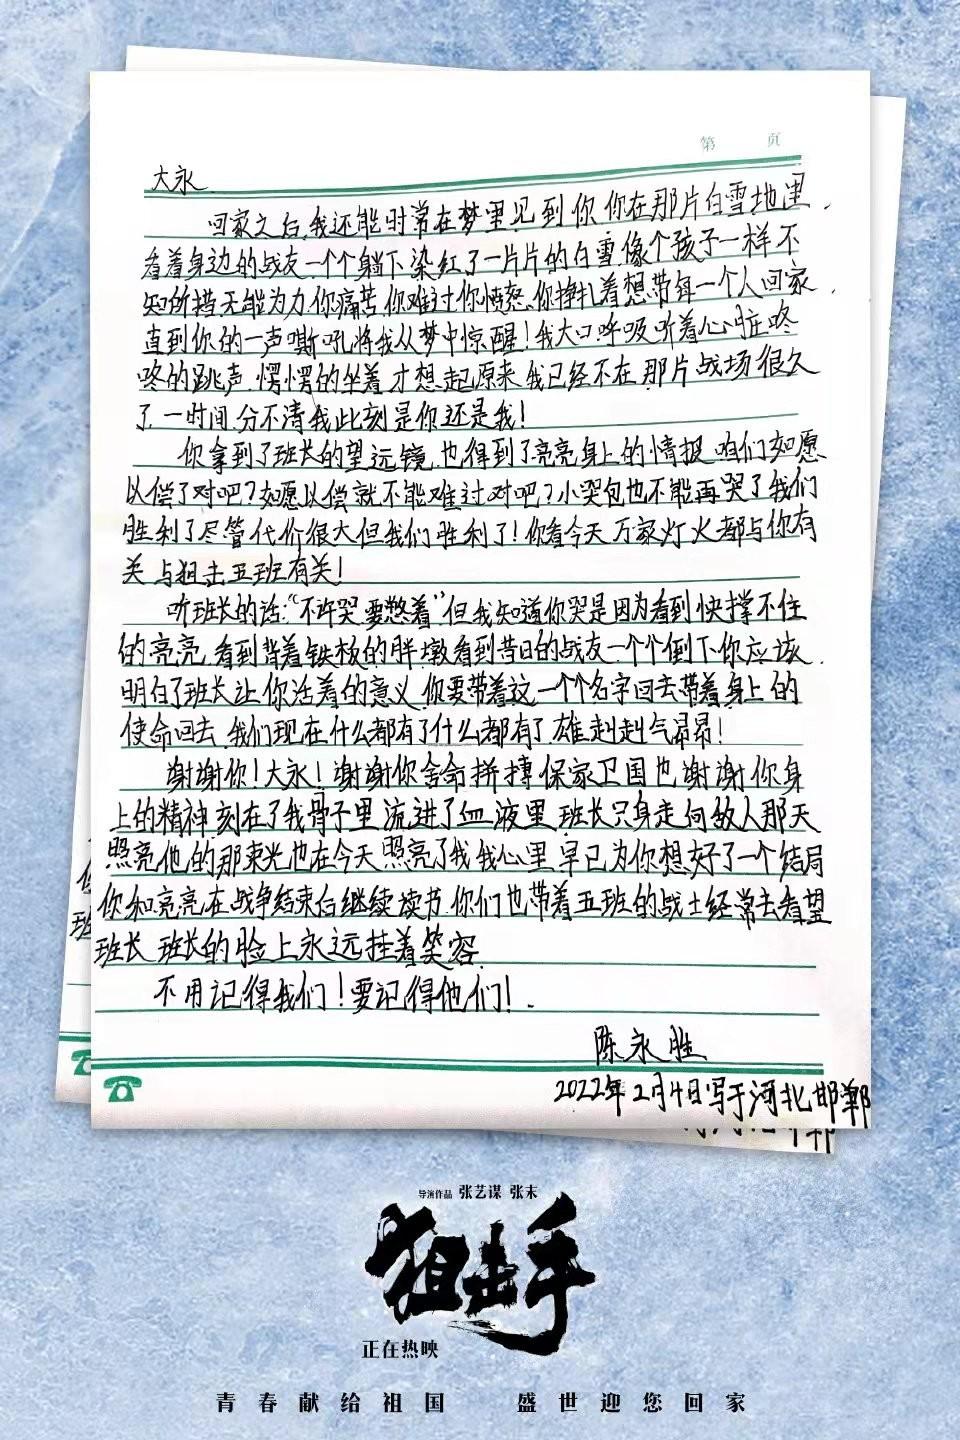 第 页
大永
回家之后,我还能时常在梦里见到你 你在那片白雪地里,
看着身边的战友一个个躺下 染红了一片片的白雪 像个孩子一样 不
知所措 无能为力 你痛苦 你难过 你愤怒 你挣扎着想带每一个人回家,
直到你的一声嘶吼将我从梦中惊醒!我大口呼吸 听着心脏咚
咚的跳声 愣愣的坐着 才想起原来我已经不在那片战场很久
了 一时间分不清我此刻是你还是我!
你拿到了班长的望远镜 也得到了亮亮身上的情报 咱们如愿
以偿了对吧?如愿以偿就不能难过对吧?小哭包也不能再哭了 我们
胜利了 尽管代价很大但我们胜利了!你看今天万家灯火都与你有
关 与狙击五班有关!
听班长的话:“不许哭 要憋着”但我知道你哭是因为看到快撑不住
的亮亮 看到背着铁板的胖墩 看到昔日的战友一个个倒下 你应该
明白了班长让你活着的意义 你要带着这一个个名字回去 带着身上的
使命回去 我们现在什么都有了 什么都有了 雄赳赳气昂昂!
谢谢你!大永!谢谢你舍命拼搏保家卫国 也谢谢你身
上的精神刻在了我骨子里 流进了血液里 班长只身走向敌人那天
照亮他的那束光也在今天照亮了我 我心里早已为你想好了一个结局
你和亮亮在战争结束后继续读书 你们也带着五班的战士经常去看望
班长 班长的脸上永远挂着笑容
不用记得我们!要记得他们!
陈永胜
2022年2月4日写于河北邯郸
导演作品 张艺谋 张末
狙击手
正在热映
青春献给祖国 盛世迎您回家